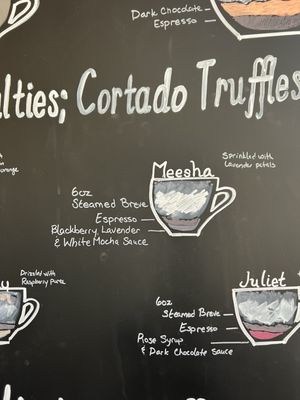 Dark Chocolate
Espresso
lties; Cortado Truffles
Meesha
Sprinkled with
Lavender petals
6oz
Steamed Breve
Espresso
Blackberry Lavender
& White Mocha Sauce
orange
Drizzled with
Raspberry Puree
y
Juliet
6oz
Steamed Breve
Espresso
Rose Syrup
& Dark Chocolate Sauce